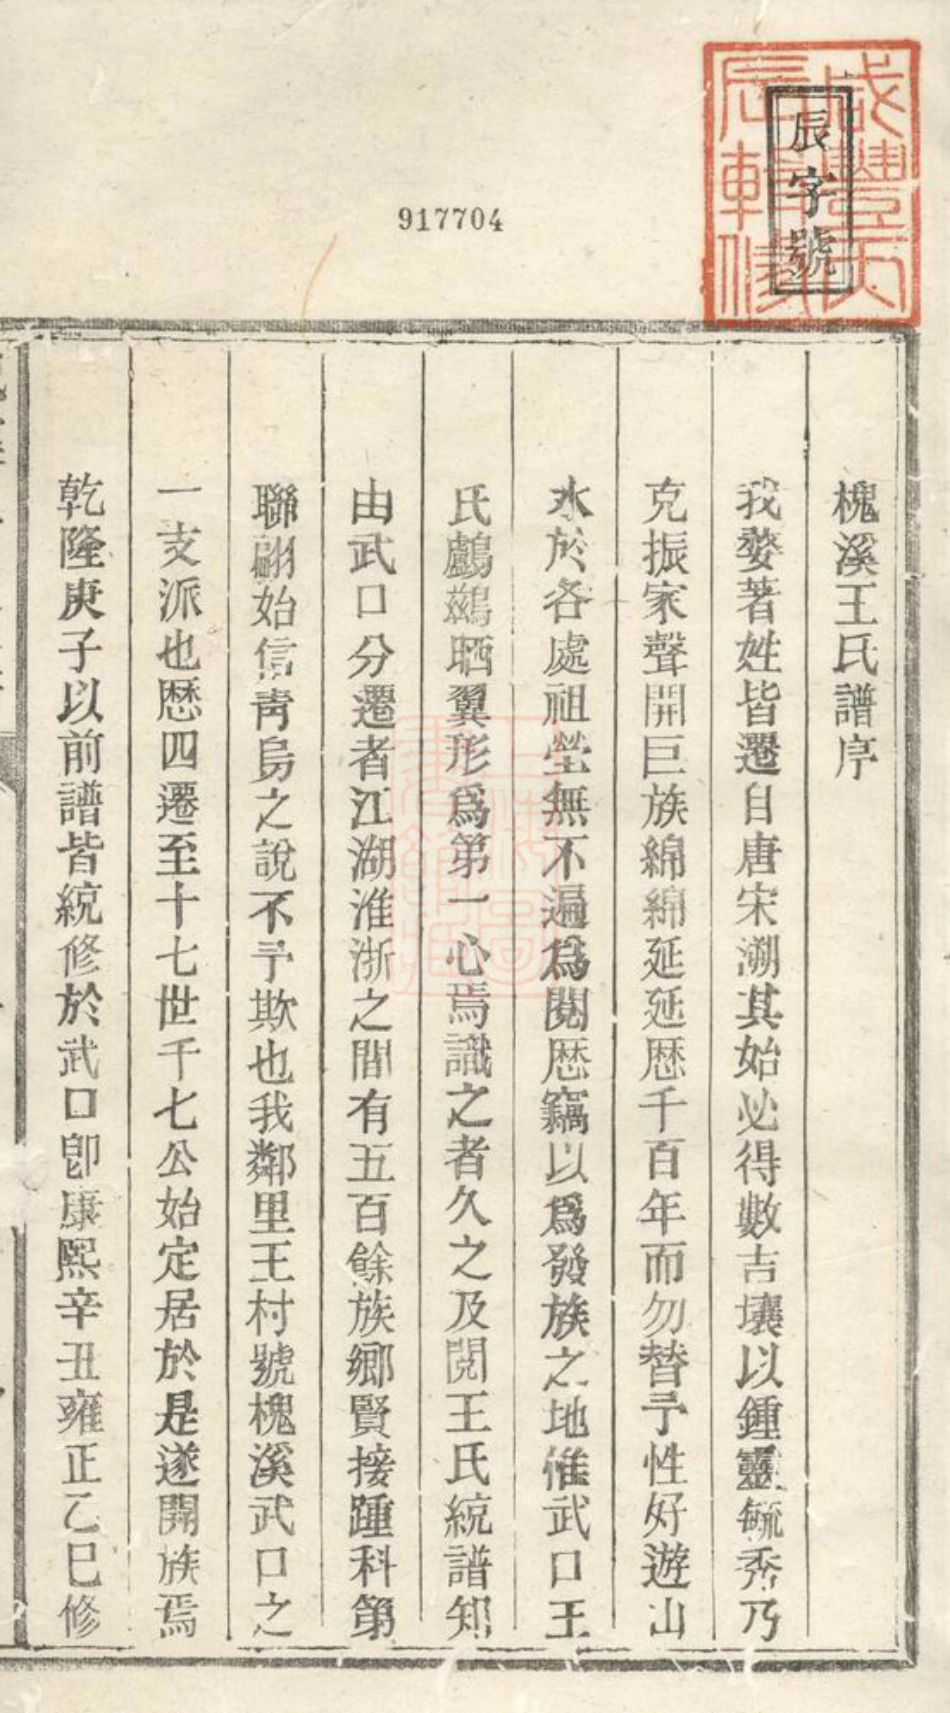 咸豐丙
辰輯修
辰字號
917704
槐溪王氏譜序
我婺著姓皆遷自唐宋溯其始必得數吉壤以鍾靈毓秀乃
克振家聲開巨族綿綿延延歴千百年而勿替予性好遊山
水於各處祖塋無不遍爲閱歴竊以爲發族之地惟武口王
氏鸕鷀晒翼形爲第一心焉識之者久之及閱王氏統譜知
由武口分遷者江湖淮浙之間有五百餘族鄉賢接踵科第
聯翩始信靑烏之說不予欺也我鄰里王村號槐溪武口之
一支派也歴四遷至十七世千七公始定居於是遂開族焉
乾隆庚子以前譜皆統修於武口卽康熙辛丑雍正乙巳修